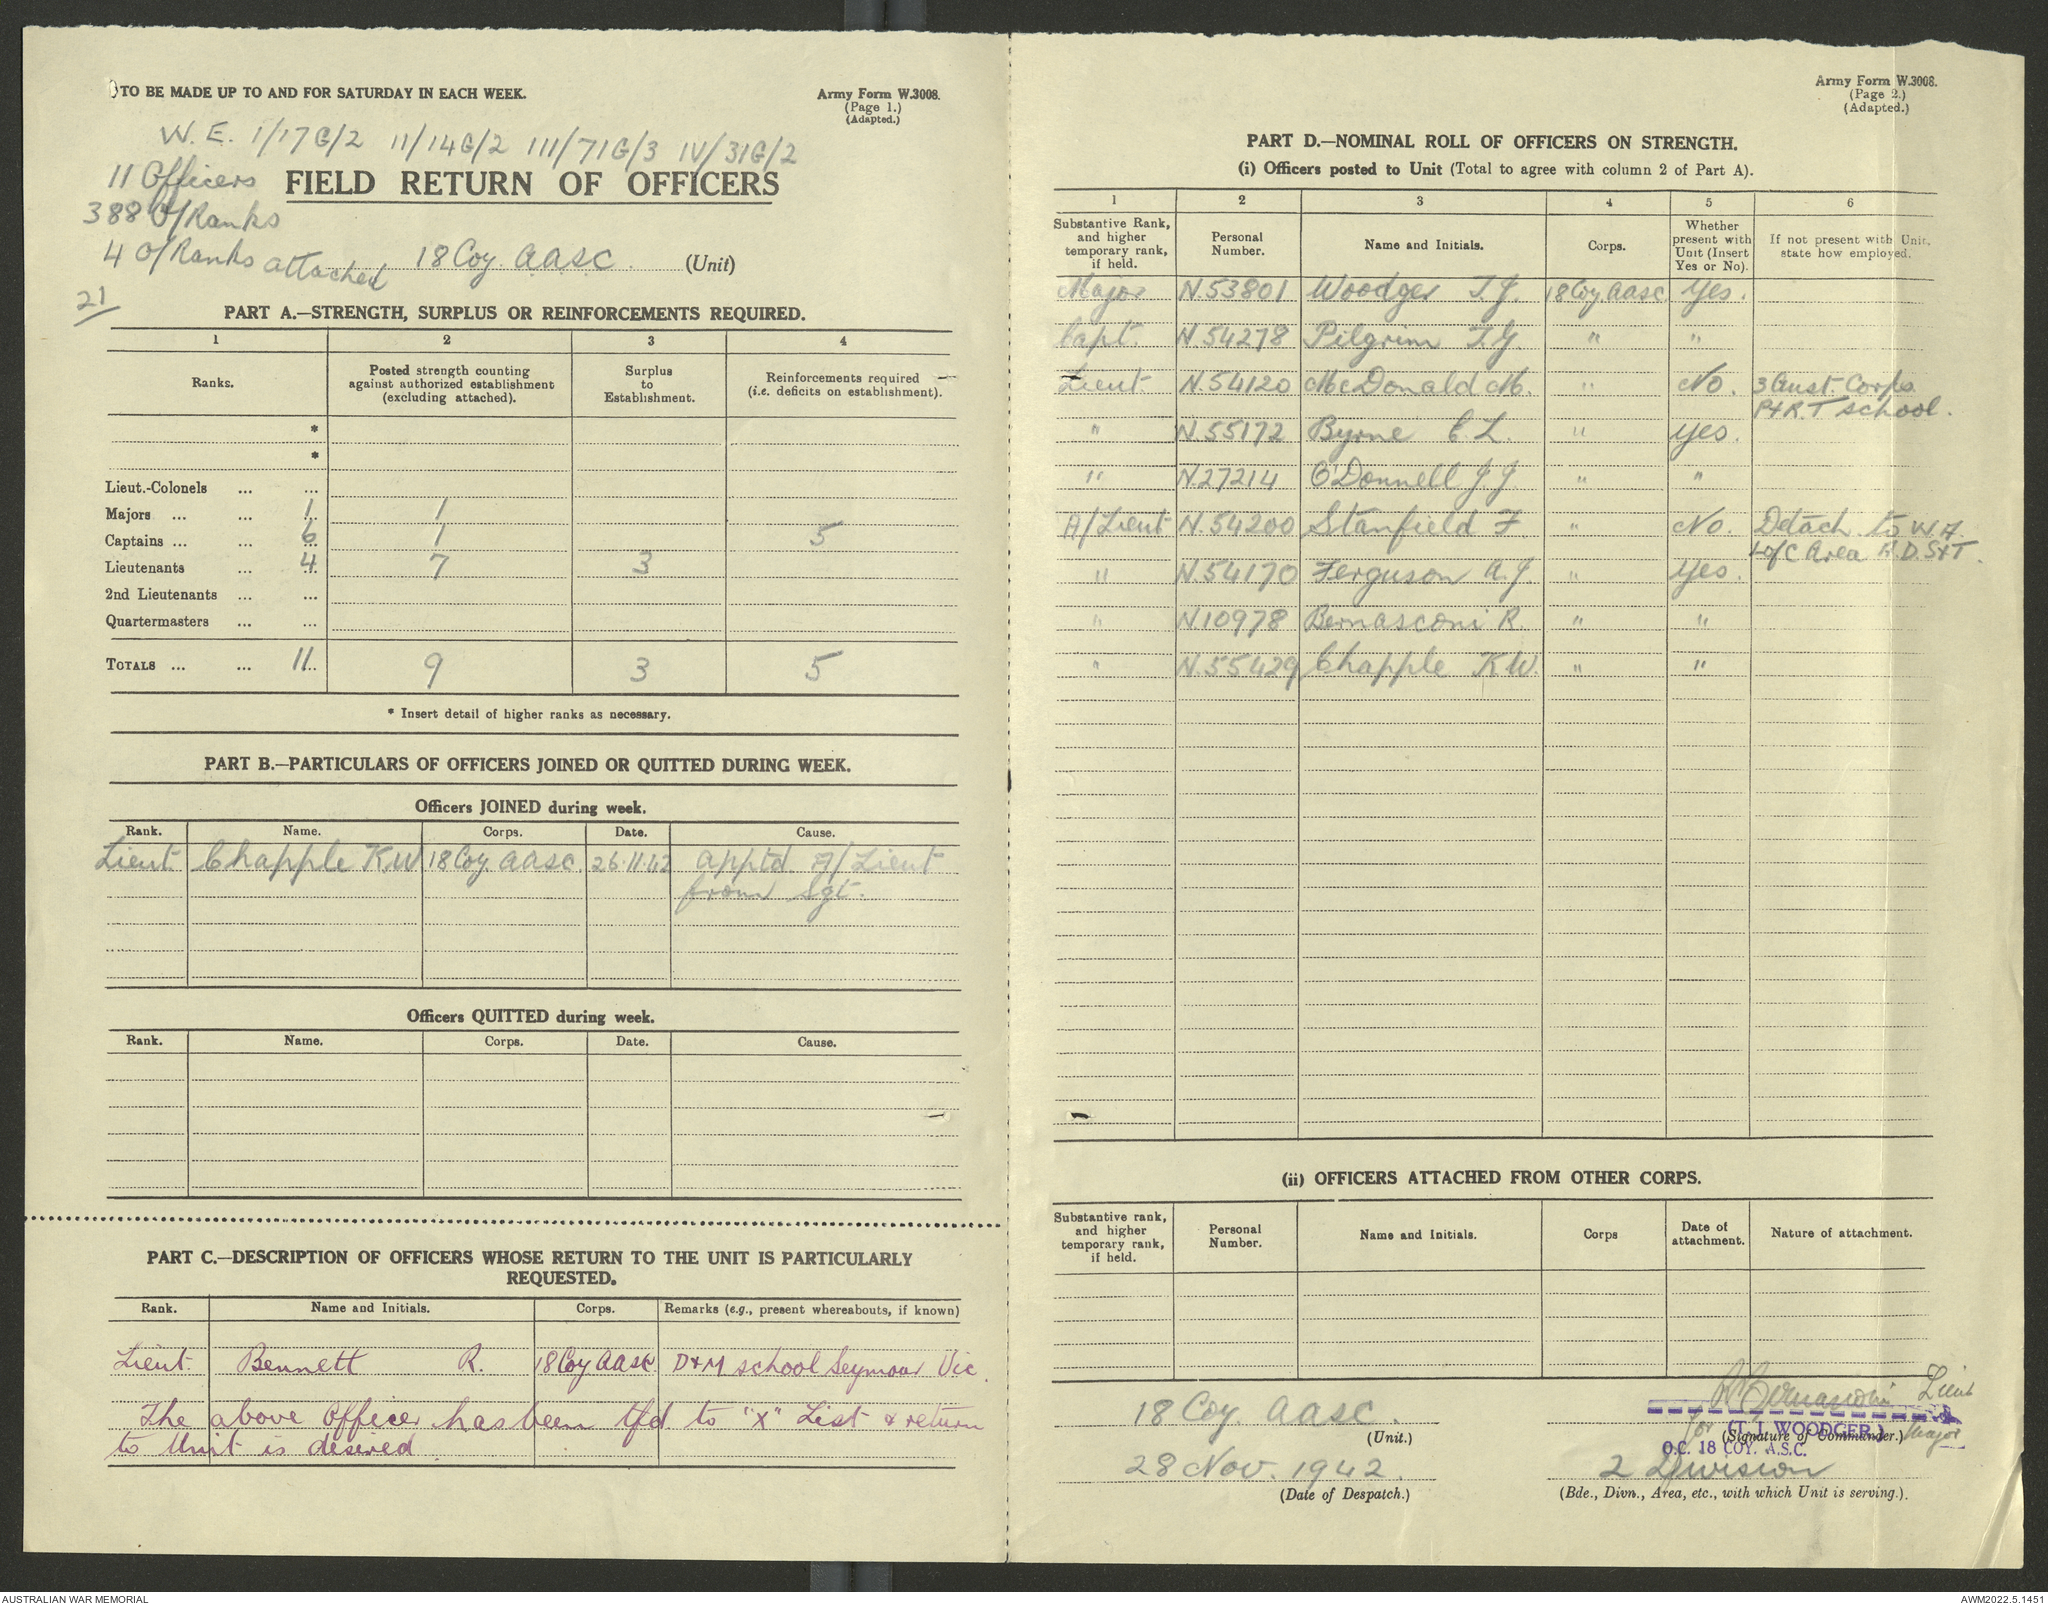 TO BE MADE UP TO AND FOR SATURDAY IN EACH WEEK.
Army Form W.3008.
(Page 1.)
(Adapted.)
W.E. I/17G/2 II/14G/2 III/71G/3 IV/31G/2
11 Officers
388 O/Ranks
4 O/Ranks attached
21
FIELD RETURN OF OFFICERS
18 Coy. AASC. (Unit)
PART A.—STRENGTH, SURPLUS OR REINFORCEMENTS REQUIRED.
1 2 3 4
Ranks. Posted strength counting against authorized establishment (excluding attached). Surplus to Establishment. Reinforcements required (i.e. deficits on establishment).
*
*
Lieut.-Colonels ... ...
Majors ... ... 1 1
Captains ... ... 6 1 5
Lieutenants ... 4 7 3
2nd Lieutenants ... ...
Quartermasters ... ...
TOTALS ... ... 11 9 3 5
* Insert detail of higher ranks as necessary.
PART B.—PARTICULARS OF OFFICERS JOINED OR QUITTED DURING WEEK.
Officers JOINED during week.
Rank. Name. Corps. Date. Cause.
Lieut. Chapple K.W. 18 Coy. AASC. 26.11.42 apptd. A/Lieut
from Sgt.
Officers QUITTED during week.
Rank. Name. Corps. Date. Cause.
PART C.—DESCRIPTION OF OFFICERS WHOSE RETURN TO THE UNIT IS PARTICULARLY
REQUESTED.
Rank. Name and Initials. Corps. Remarks (e.g., present whereabouts, if known)
Lieut. Bennett R. 18 Coy AASC. D+M school Seymour Vic.
The above Officer has been tfd to "X" List & return
to Unit is desired
Army Form W.3008.
(Page 2.)
(Adapted.)
PART D.—NOMINAL ROLL OF OFFICERS ON STRENGTH.
(i) Officers posted to Unit (Total to agree with column 2 of Part A).
1 2 3 4 5 6
Substantive Rank, and higher temporary rank, if held. Personal Number. Name and Initials. Corps. Whether present with Unit (Insert Yes or No). If not present with Unit, state how employed.
Major N.53801 Woodger T.J. 18 Coy AASC. Yes.
Capt. N.54278 Pilgrim T.G. " "
Lieut. N.54120 McDonald M. " No. 3 Aust. Corps.
P+R.T school.
" N.55172 Byrne C.L. " Yes.
" N.27214 O'Donnell J.J. " "
A/Lieut N.54200 Stanfield F " No. Detach. to W.A.
L of C Area R.D.S+T.
" N.54170 Ferguson A.J. " Yes.
" N10978 Bernasconi R. " "
" N.55429 Chapple K.W. " "
(ii) OFFICERS ATTACHED FROM OTHER CORPS.
Substantive rank, and higher temporary rank, if held. Personal Number. Name and Initials. Corps Date of attachment. Nature of attachment.
18 Coy. AASC.
(Unit.)
28 Nov. 1942.
(Date of Despatch.)
R Bernasconi Lieut
for (T. J. WOODGER.) Major
(Signature of Commander.)
O.C. 18 COY. A.S.C.
2 Division
(Bde., Divn., Area, etc., with which Unit is serving.).
AUSTRALIAN WAR MEMORIAL
AWM2022.5.1451